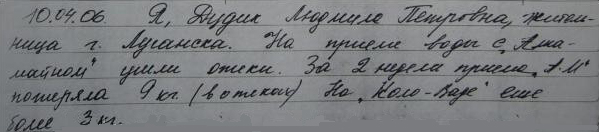 10.04.06. Я, Дудик Людмила Петровна, житель-
ница г. Луганска. На приеме воды с „Алка-
майном" ушли отеки. За 2 недели приема „А-М"
потеряла 9 кг. (в отеках) На „Коло-Ваде" еще
более 3 кг.